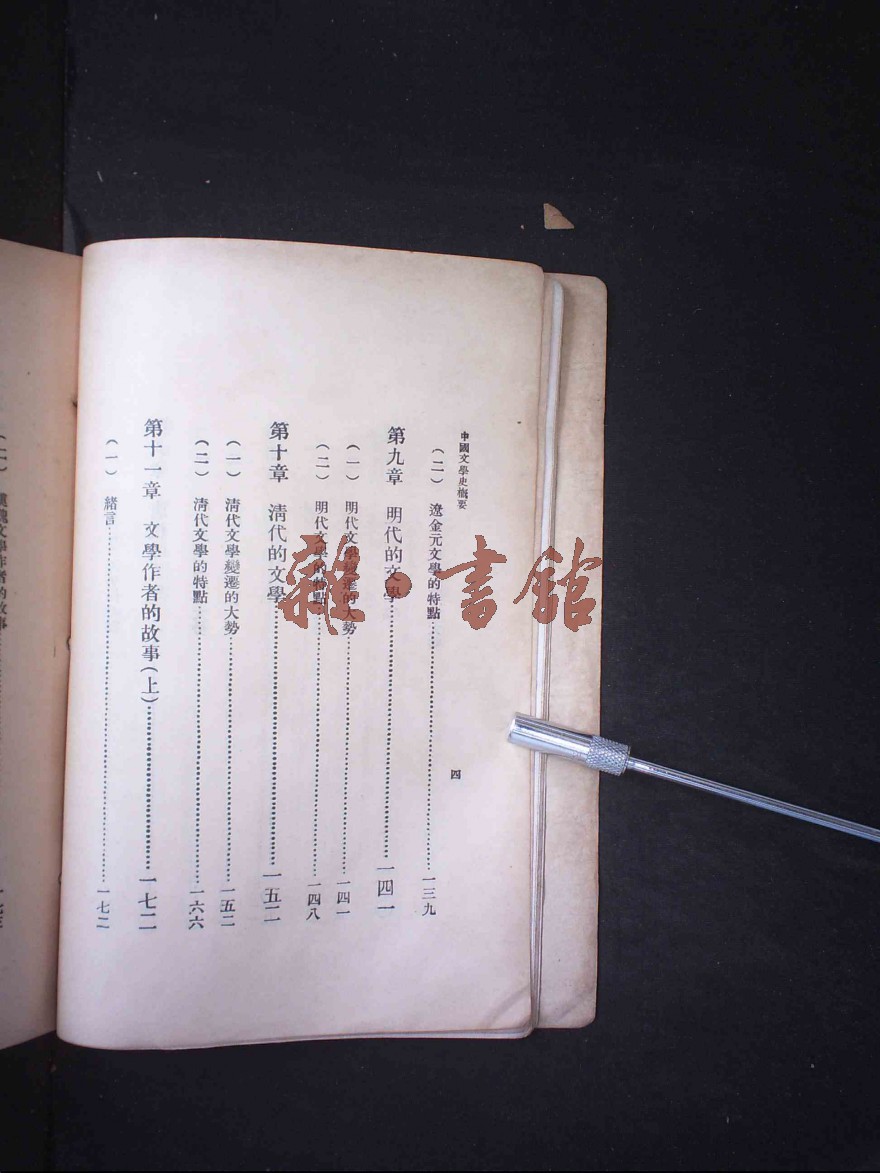 中國文學史概要
四
(二) 遼金元文學的特點 一三九
第九章 明代的文學 一四一
(一) 明代文學變遷的大勢 一四一
(二) 明代文學的特點 一四八
第十章 清代的文學 一五二
(一) 清代文學變遷的大勢 一五二
(二) 清代文學的特點 一六六
第十一章 文學作者的故事(上) 一七二
(一) 緒言 一七二
文學作者的故事
雜·書館